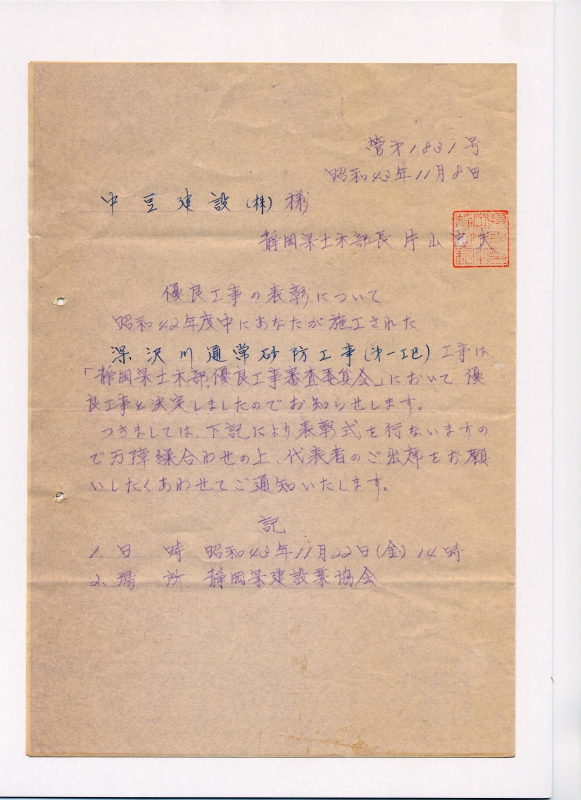 管第1831号
昭和43年11月8日
中豆建設(株)様
静岡県土木部長 片山
優良工事の表彰について
昭和42年度中にあなたが施工された
深沢川通常砂防工事(第一工区)工事は、
「静岡県土木部優良工事審査委員会」において、優
良工事と決定しましたのでお知らせします。
つきましては、下記により表彰式を行ないますの
で万障繰合わせの上、代表者のご出席をお願
いしたくあわせてご通知いたします。
記
1.日 時 昭和43年11月22日(金)14時
2.場 所 静岡県建設業協会